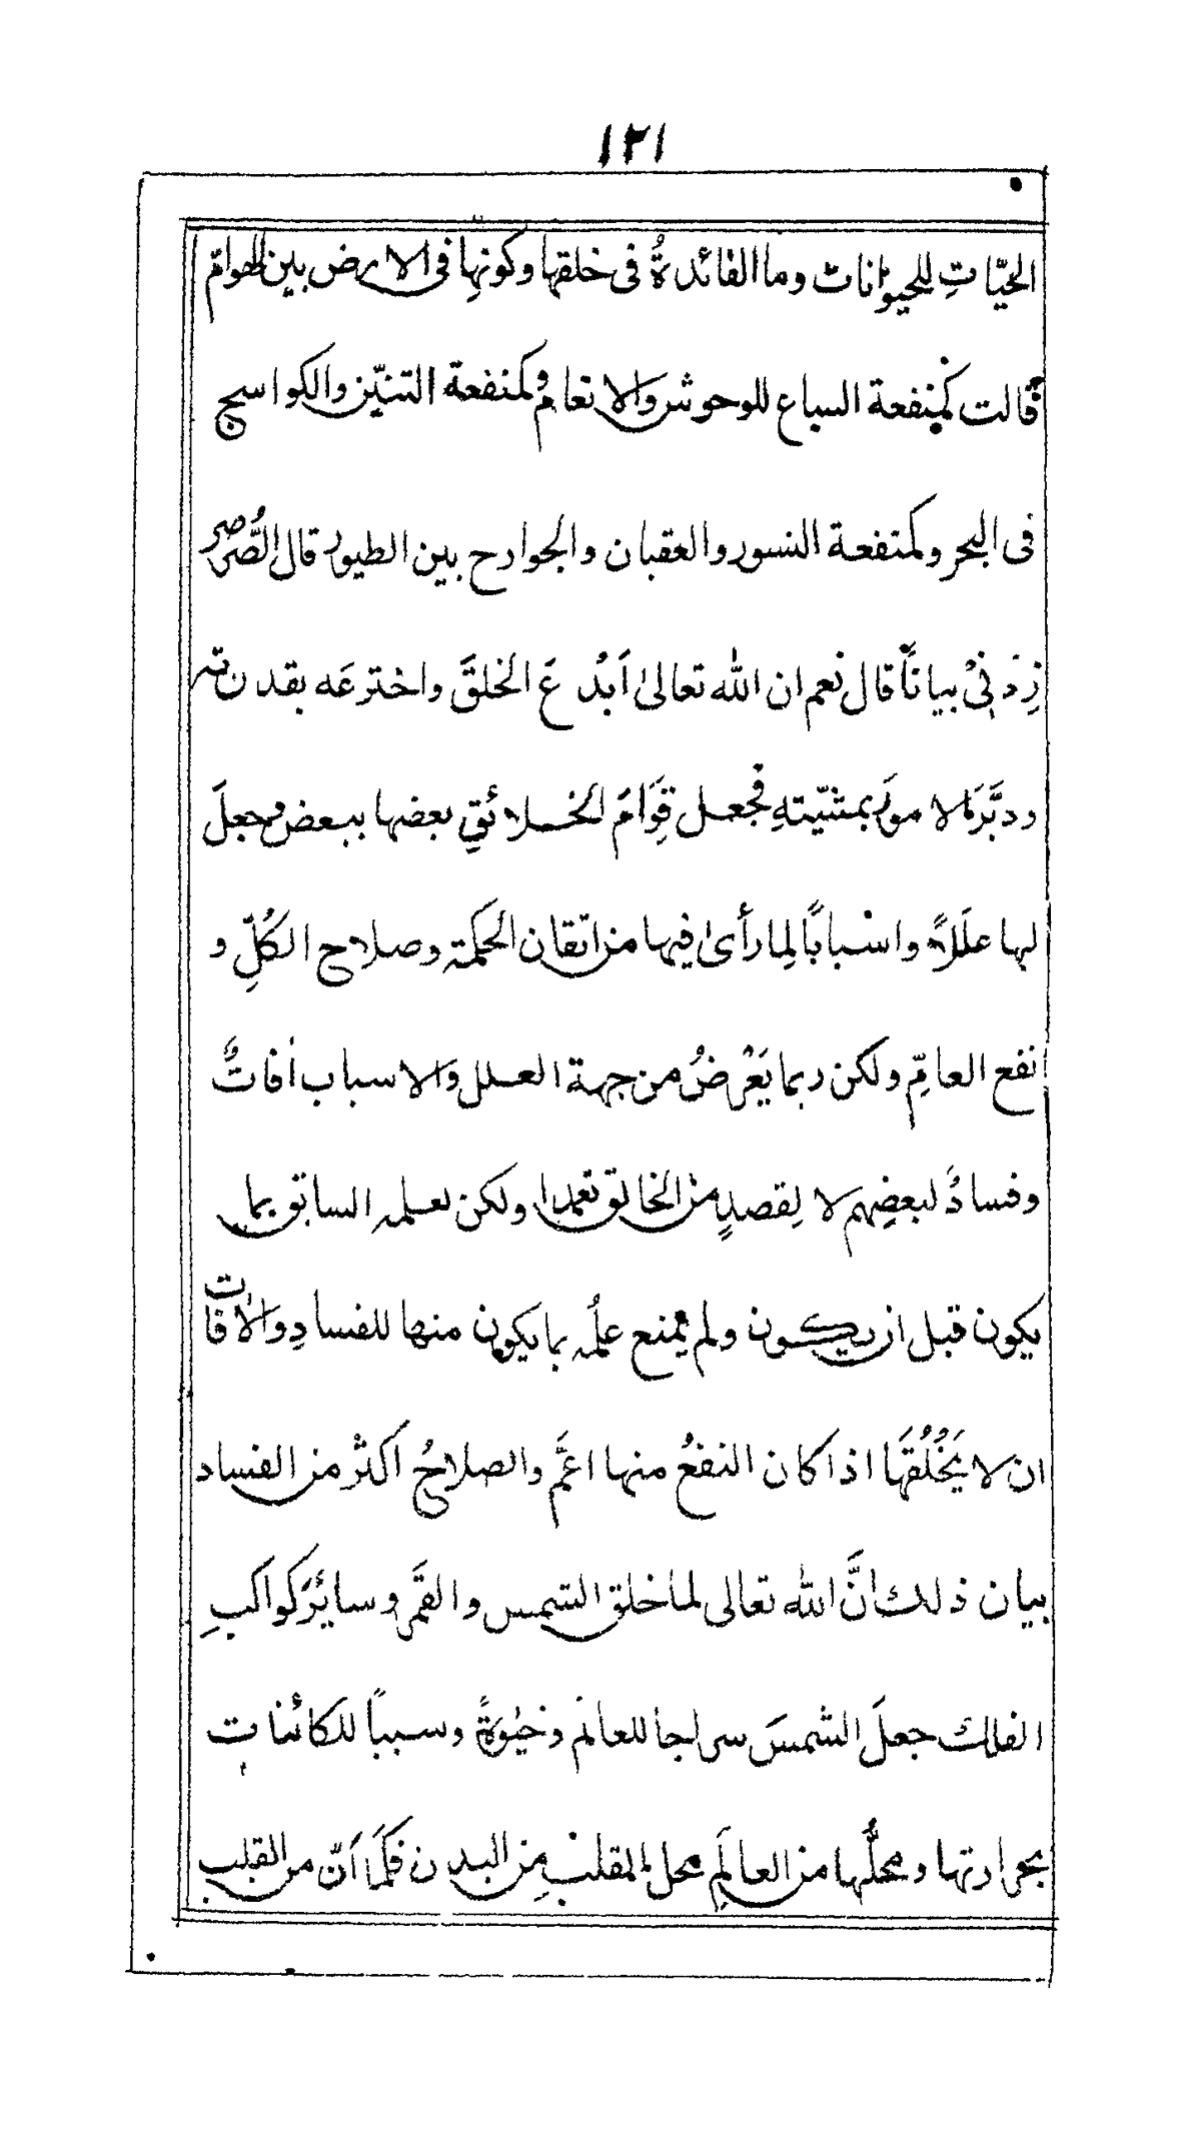 ١٢١
الحيّاتِ للحيوانات وما الفائدةُ فى خلقها وكونِها فى الارض بين الهوامّ
قالت كمنفعة السباع للوحوش والانعام وكمنفعة التنيّن والكواسج
فى البحر وكمنفعة النسور والعقبان والجوارح بين الطيور قال الصُّرصر
زِدْنِىْ بياناً قال نعم ان الله تعالىٰ اَبْدَعَ الخلقَ واخترعَه بقدرته
ودبَّرَ الامورَ بمشيّتهِ فجعل قِوَامَ الخلائقِ بعضها ببعض وجعلَ
لها علَلاً واسْبابًا لِما رأىٰ فيها من اتقان الحكمة وصلاح الكُلِّ و
نفع العامِّ ولكن ربما يَعْرضُ من جهة العلل والاسباب اٰفاتٌ
وفسادٌ لبعضِهم لا لِقصدٍ من الخالق تعمدا ولكن لعلمه السابق بما
يكون قبل ان يكون ولم يمنع علمُه بما يكون منها للفسادِ والاٰفات
ان لا يَخْلُقَها اذا كان النفعُ منها اعَمَّ والصلاحُ اكثرْ من الفساد
بيان ذلك انَّ الله تعالى لما خلق الشمس والقمَر وسائرَ كواكبِ
الفلك جعلَ الشمسَ سراجا للعالم وحيٰوةً وسببًا للكائنات
بحرارتها ومحلُّها من العالَمِ محل القلب مِن البدن فكَما اَنّ من القلب